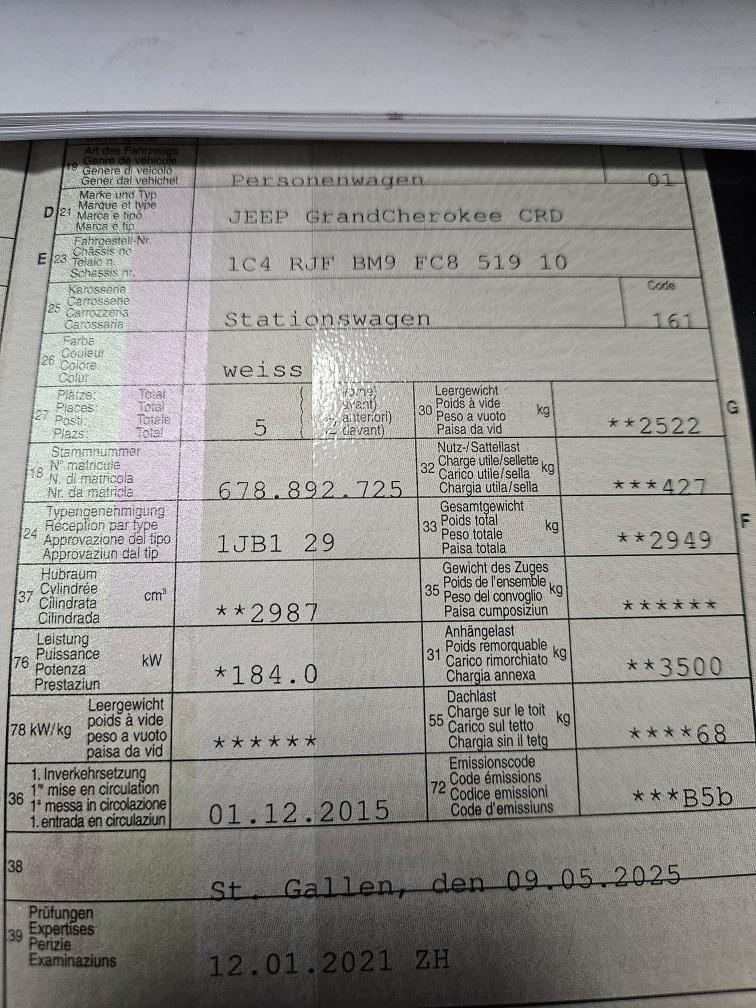 Art des Fahrzeugs
19 Genre de véhicule
Genere di veicolo
Gener dal vehichel
Personenwagen
01
D 21 Marke und Typ
Marque et type
Marca e tipo
Marca e tip
JEEP GrandCherokee CRD
E 23 Fahrgestell-Nr.
Châssis no
Telaio n.
Schassis nr.
1C4 RJF BM9 FC8 519 10
25 Karosserie
Carrosserie
Carrozzeria
Carossaria
Stationswagen
Code
161
26 Farbe
Couleur
Colore
Colur
weiss
27 Plätze: Total
Places: Total
Posti: Totale
Plazs: Total
5
anteriori)
davant)
30 Leergewicht
Poids à vide
Peso a vuoto
Paisa da vid
kg
**2522
G
18 Stammnummer
N° matricule
N. di matricola
Nr. da matricla
678.892.725
32 Nutz-/Sattellast
Charge utile/sellette
Carico utile/sella
Chargia utila/sella
kg
***427
24 Typengenehmigung
Réception par type
Approvazione del tipo
Approvaziun dal tip
1JB1 29
33 Gesamtgewicht
Poids total
Peso totale
Paisa totala
kg
**2949
F
37 Hubraum
Cylindrée
Cilindrata
Cilindrada
cm³
**2987
35 Gewicht des Zuges
Poids de l'ensemble
Peso del convoglio
Paisa cumposiziun
kg
******
76 Leistung
Puissance
Potenza
Prestaziun
kW
*184.0
31 Anhängelast
Poids remorquable
Carico rimorchiato
Chargia annexa
kg
**3500
78 kW/kg
Leergewicht
poids à vide
peso a vuoto
paisa da vid
******
55 Dachlast
Charge sur le toit
Carico sul tetto
Chargia sin il tetg
kg
****68
36 1. Inverkehrsetzung
1re mise en circulation
1a messa in circolazione
1. entrada en circulaziun
01.12.2015
72 Emissionscode
Code émissions
Codice emissioni
Code d'emissiuns
***B5b
38
St. Gallen, den 09.05.2025
39 Prüfungen
Expertises
Perizie
Examinaziuns
12.01.2021 ZH